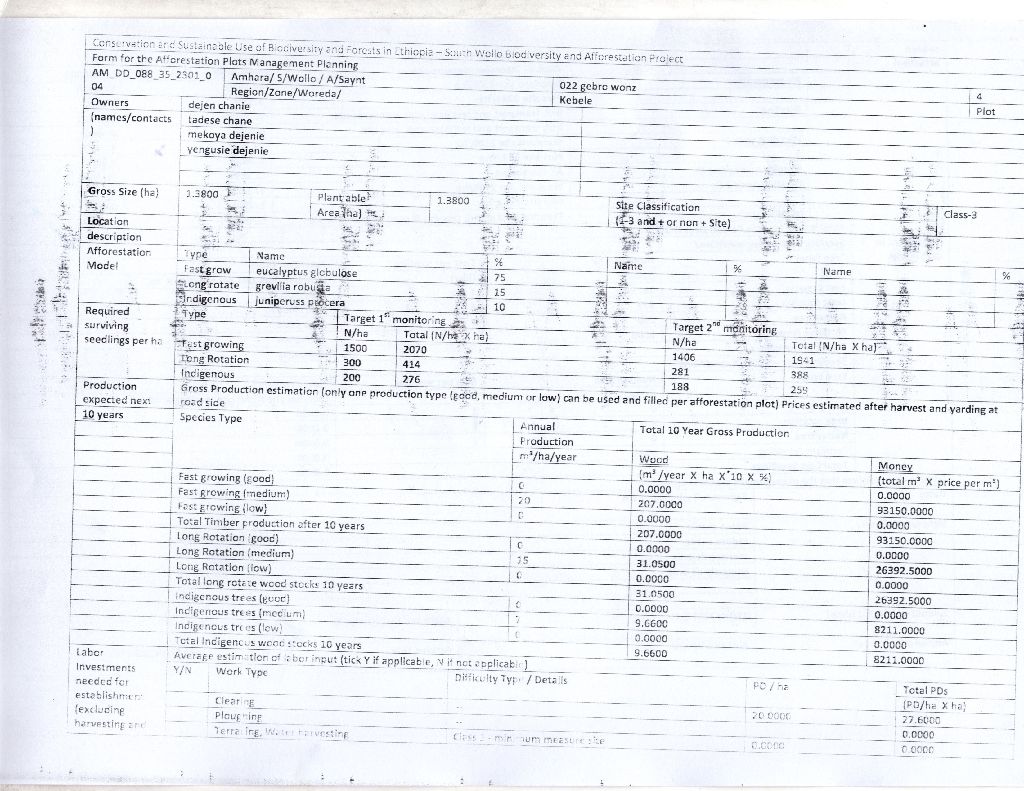 Conservation and Sustainable Use of Biodiversity and Forests in Ethiopia – South Wollo Biodiversity and Afforestation Project
Form for the Afforestation Plots Management Planning
AM_DD_088_35_2301_0 Amhara/ S/Wollo / A/Saynt 022 gebro wonz 4
04 Region/Zone/Woreda/ Kebele Plot
Owners dejen chanie
(names/contacts tadese chane
) mekoya dejenie
yengusie dejenie
Gross Size (ha) 1.3800 Plantable 1.3800 Site Classification Class-3
Area (ha) (1-3 and + or non + Site)
Location
description
Afforestation Type Name % Name % Name %
Model Fast grow eucalyptus globulose 75
Long rotate grevilia robusta 15
Indigenous juniperuss procera 10
Required Type Target 1st monitoring Target 2nd monitoring
surviving N/ha Total (N/ha X ha) N/ha Total (N/ha X ha)
seedlings per ha Fast growing 1500 2070 1406 1941
Long Rotation 300 414 281 388
Indigenous 200 276 188 259
Production Gross Production estimation (only one production type (good, medium or low) can be used and filled per afforestation plot) Prices estimated after harvest and yarding at
expected next road side
10 years Species Type Annual Total 10 Year Gross Production
Production
m³/ha/year Wood Money
(m³ /year X ha X 10 X %) (total m³ X price per m³)
Fast growing (good) 0 0.0000 0.0000
Fast growing (medium) 20 207.0000 93150.0000
Fast growing (low) 0 0.0000 0.0000
Total Timber production after 10 years 207.0000 93150.0000
Long Rotation (good) 0 0.0000 0.0000
Long Rotation (medium) 15 31.0500 26392.5000
Long Rotation (low) 0 0.0000 0.0000
Total long rotate wood stocks 10 years 31.0500 26392.5000
Indigenous trees (good) 0 0.0000 0.0000
Indigenous trees (medium) 7 9.6600 8211.0000
Indigenous trees (low) 0 0.0000 0.0000
Total Indigenous wood stocks 10 years 9.6600 8211.0000
Labor Average estimation of labor input (tick Y if applicable, N if not applicable)
Investments Y/N Work Type Difficulty Type / Details PD / ha Total PDs
needed for (PD/ha X ha)
establishment Clearing 20.0000 27.6000
(excluding Ploughing 0.0000
harvesting and Terracing, Water harvesting Class 3 - minimum measure site 0.0000 0.0000